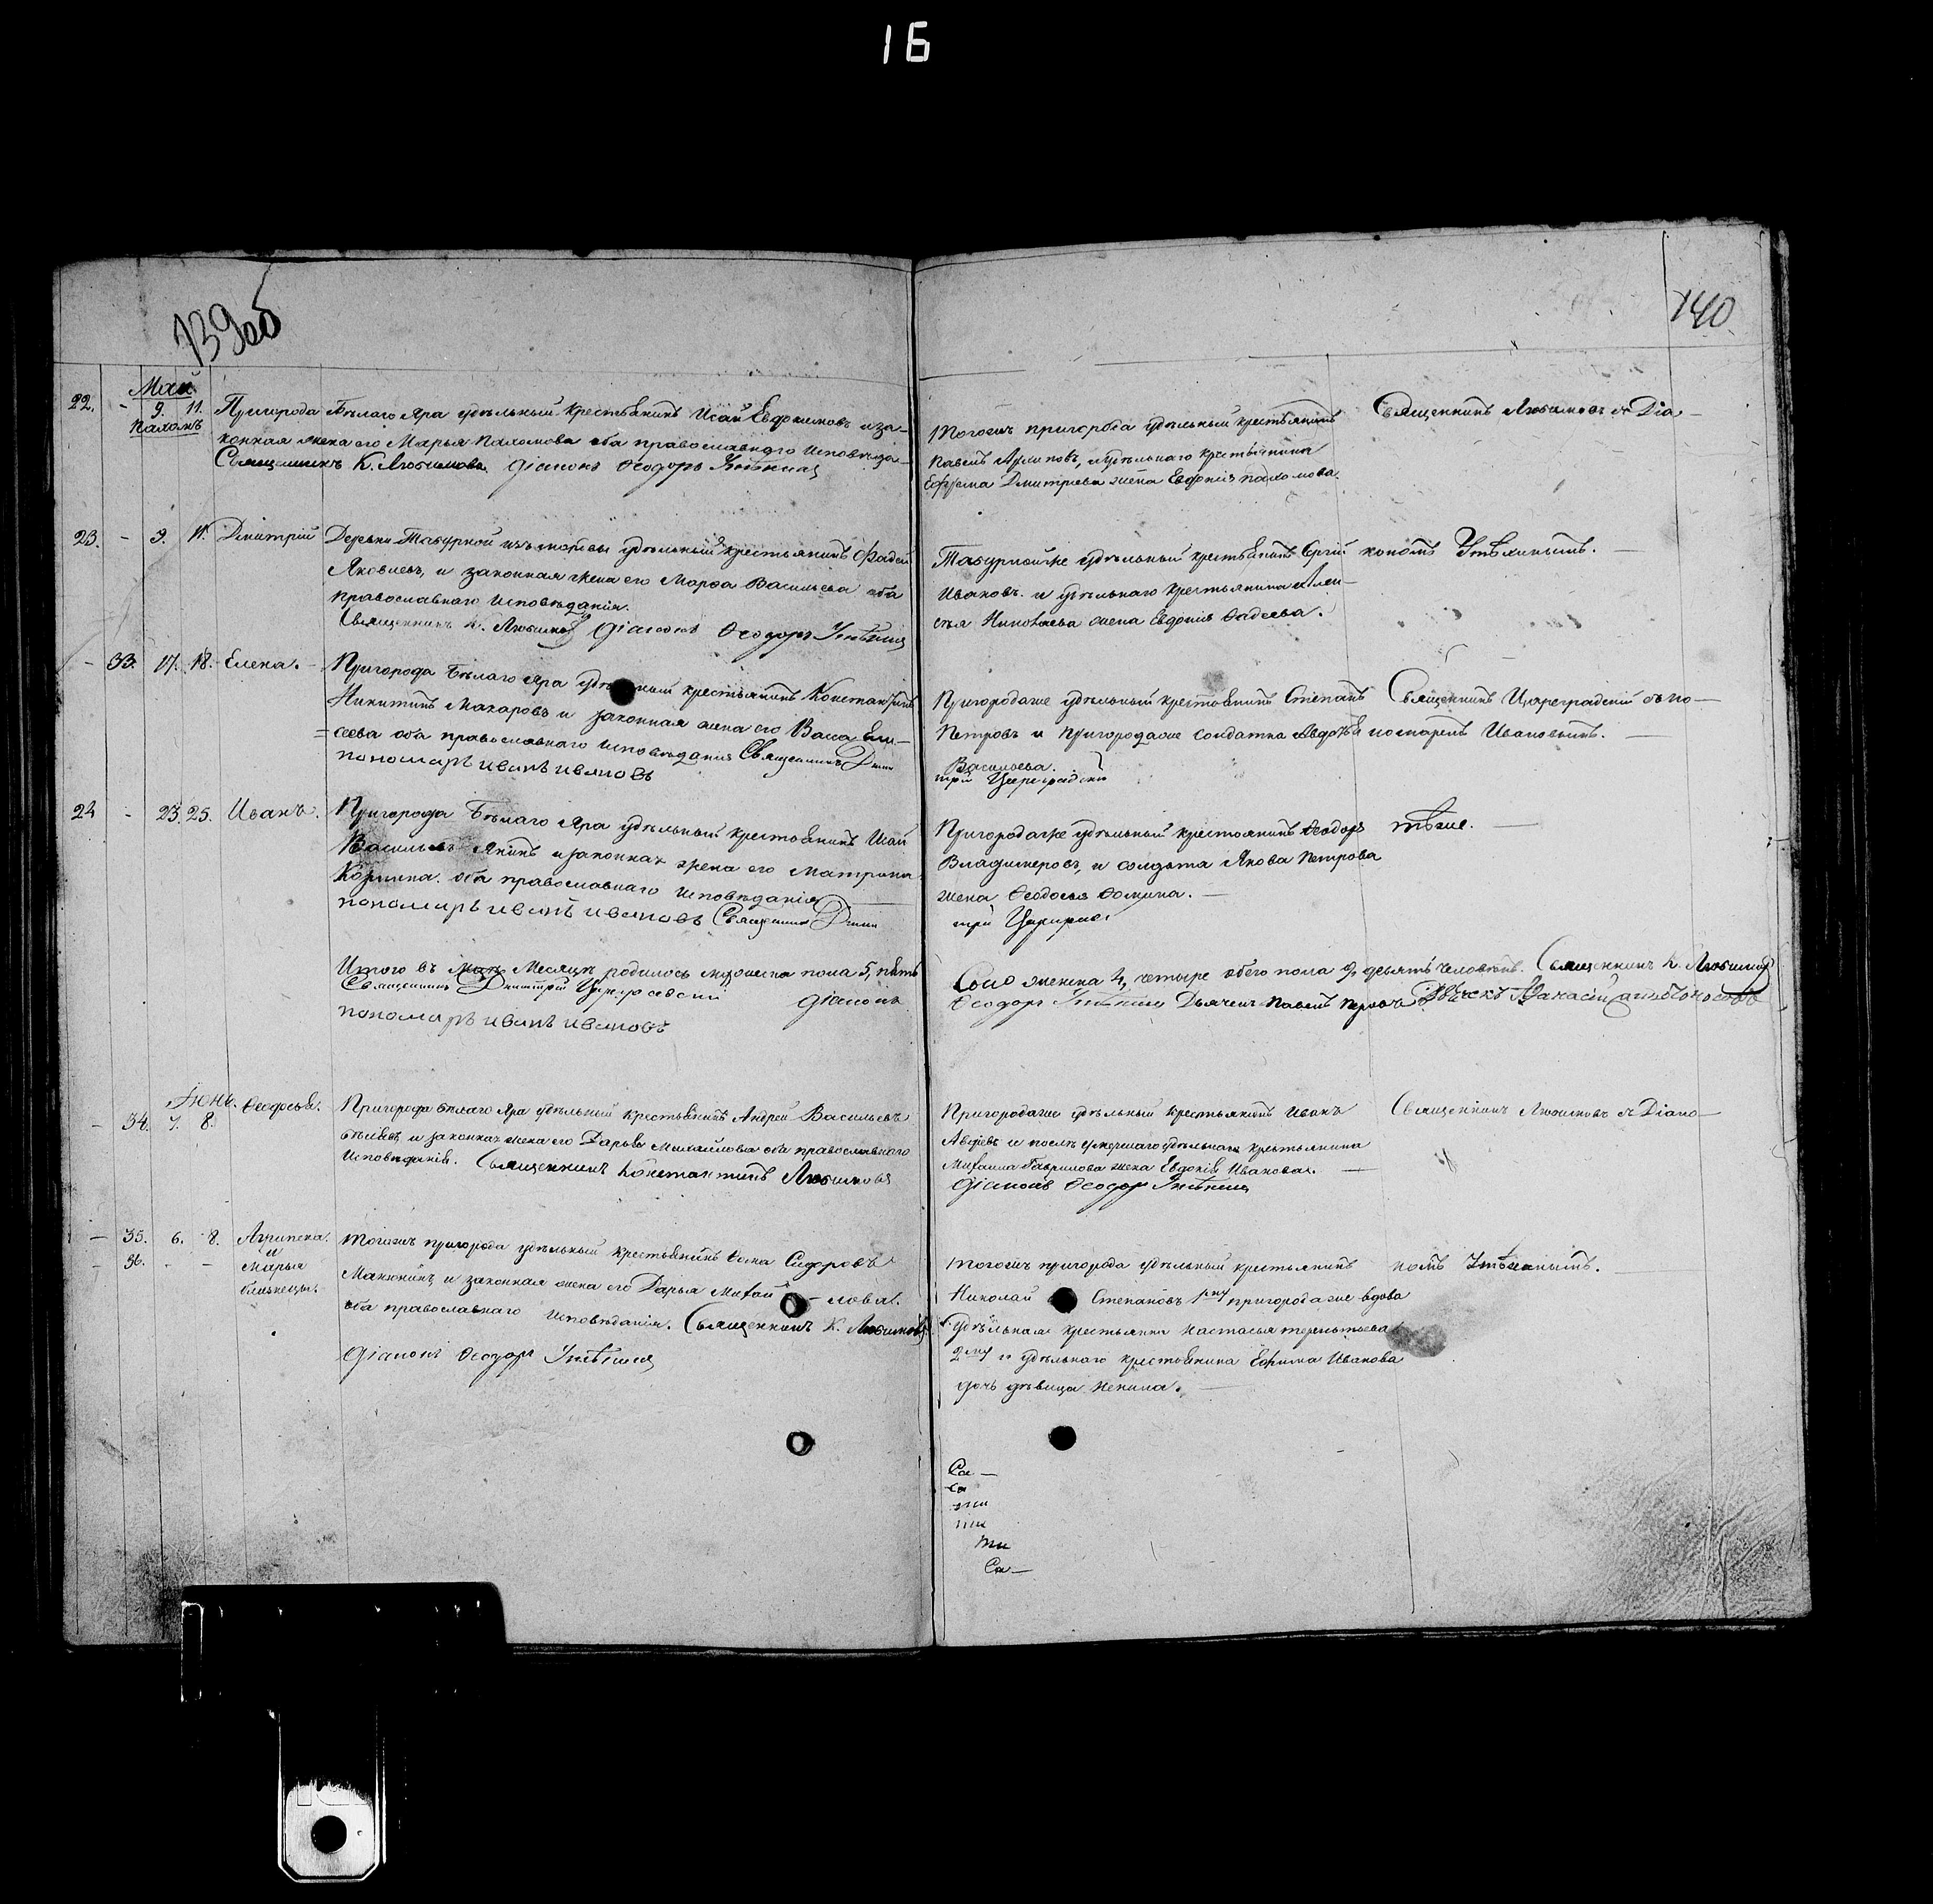 16
139об
140
Май
22. - 9. 11. Пригорода Бѣлаго Яра удѣльный крестьянинъ Исай Евдокимовъ и за-
Пахомъ
конная жена его Марья Пахомова оба православнаго исповѣда-
Священникъ К. Любимовъ діаконъ Ѳеодоръ
Тогожъ пригорода удѣльный крестьянинъ
Павелъ Архиповъ, и удѣльнаго крестьянина
Ефрема Дмитриева жена Евдокія Пахомова.
Священникъ Любимовъ съ Діа-
23. - 9. 11. Дмитрій Деревни удѣльный крестьянинъ Фадей
Яковлевъ, и законная жена его Марѳа Васильева оба
православнаго исповѣданія.
Священникъ К. Любимовъ діаконъ Ѳеодоръ
удѣльный крестьянинъ Сергій
Ивановъ и удѣльнаго крестьянина Алек-
сѣя Николаева жена Евдокія Фадеева.
кономъ
- 33. 17. 18. Елена. Пригорода Бѣлаго Яра удѣльный крестьянинъ Константинъ
Никитинъ Макаровъ и законная жена его Васса Ели-
сѣева оба православнаго исповѣданія Священникъ Дми
пономарь иванъ ивановъ
Пригородаже удѣльный крестьянинъ Степанъ
Петровъ и пригородаже солдатка Авдотья
Васильева.
трій Цареградскій
Священникъ Цареградскій съ по-
номаремъ Ивановымъ.
24 - 23. 25. Иванъ. Пригорода Бѣлаго Яра удѣльный крестьянинъ Исай
Васильевъ и законная жена его Матрона
оба православнаго исповѣданія
пономарь иванъ ивановъ Священникъ Дими
Пригородаже удѣльный крестьянинъ Ѳеодоръ
Владимеровъ, и солдата Якова Петрова
жена Ѳеодосья Ѳомина.
трій
тѣже.
Итого въ маѣ месяцѣ родилось мужеска пола 5, пять
Священникъ Димитрій Цареградскій діаконъ
пономарь иванъ ивановъ
женска 4, четыре обоего пола 9, девять человѣкъ. Священникъ К. Любимовъ
Ѳеодоръ Дьячекъ Павелъ
Іюнь.
- 34. 7. 8. Ѳеодосья. Пригорода Бѣлаго Яра удѣльный крестьянинъ Андрей Васильевъ
и законная жена его Дарья Михайлова оба православнаго
исповѣданія. Священникъ Константинъ Любимовъ
Пригородаже удѣльный крестьянинъ Иванъ
Авдѣевъ и послѣ умершаго удѣльнаго крестьянина
Михаила Гаврилова жена Евдокія Иванова.
діаконъ Ѳеодоръ
Священникъ Любимовъ съ Діако-
- 35. 6. 8. Агрипена. Тогожъ пригорода удѣльный крестьянинъ Ѳома Сидоровъ
- 36. - - и
Марья
близнецы.
и законная жена его Дарья Михай-лова.
оба православнаго исповѣданія. Священникъ К. Любимовъ
діаконъ Ѳеодоръ
Тогожъ пригорода удѣльный крестьянинъ
Николай Степановъ 1ну пригородаже вдова
удѣльная крестьянка Настасья Терентьева
2ну и удѣльнаго крестьянина Ефима Иванова
дочь дѣвица
номъ
Са-
са
ти
ти
ти
Са-